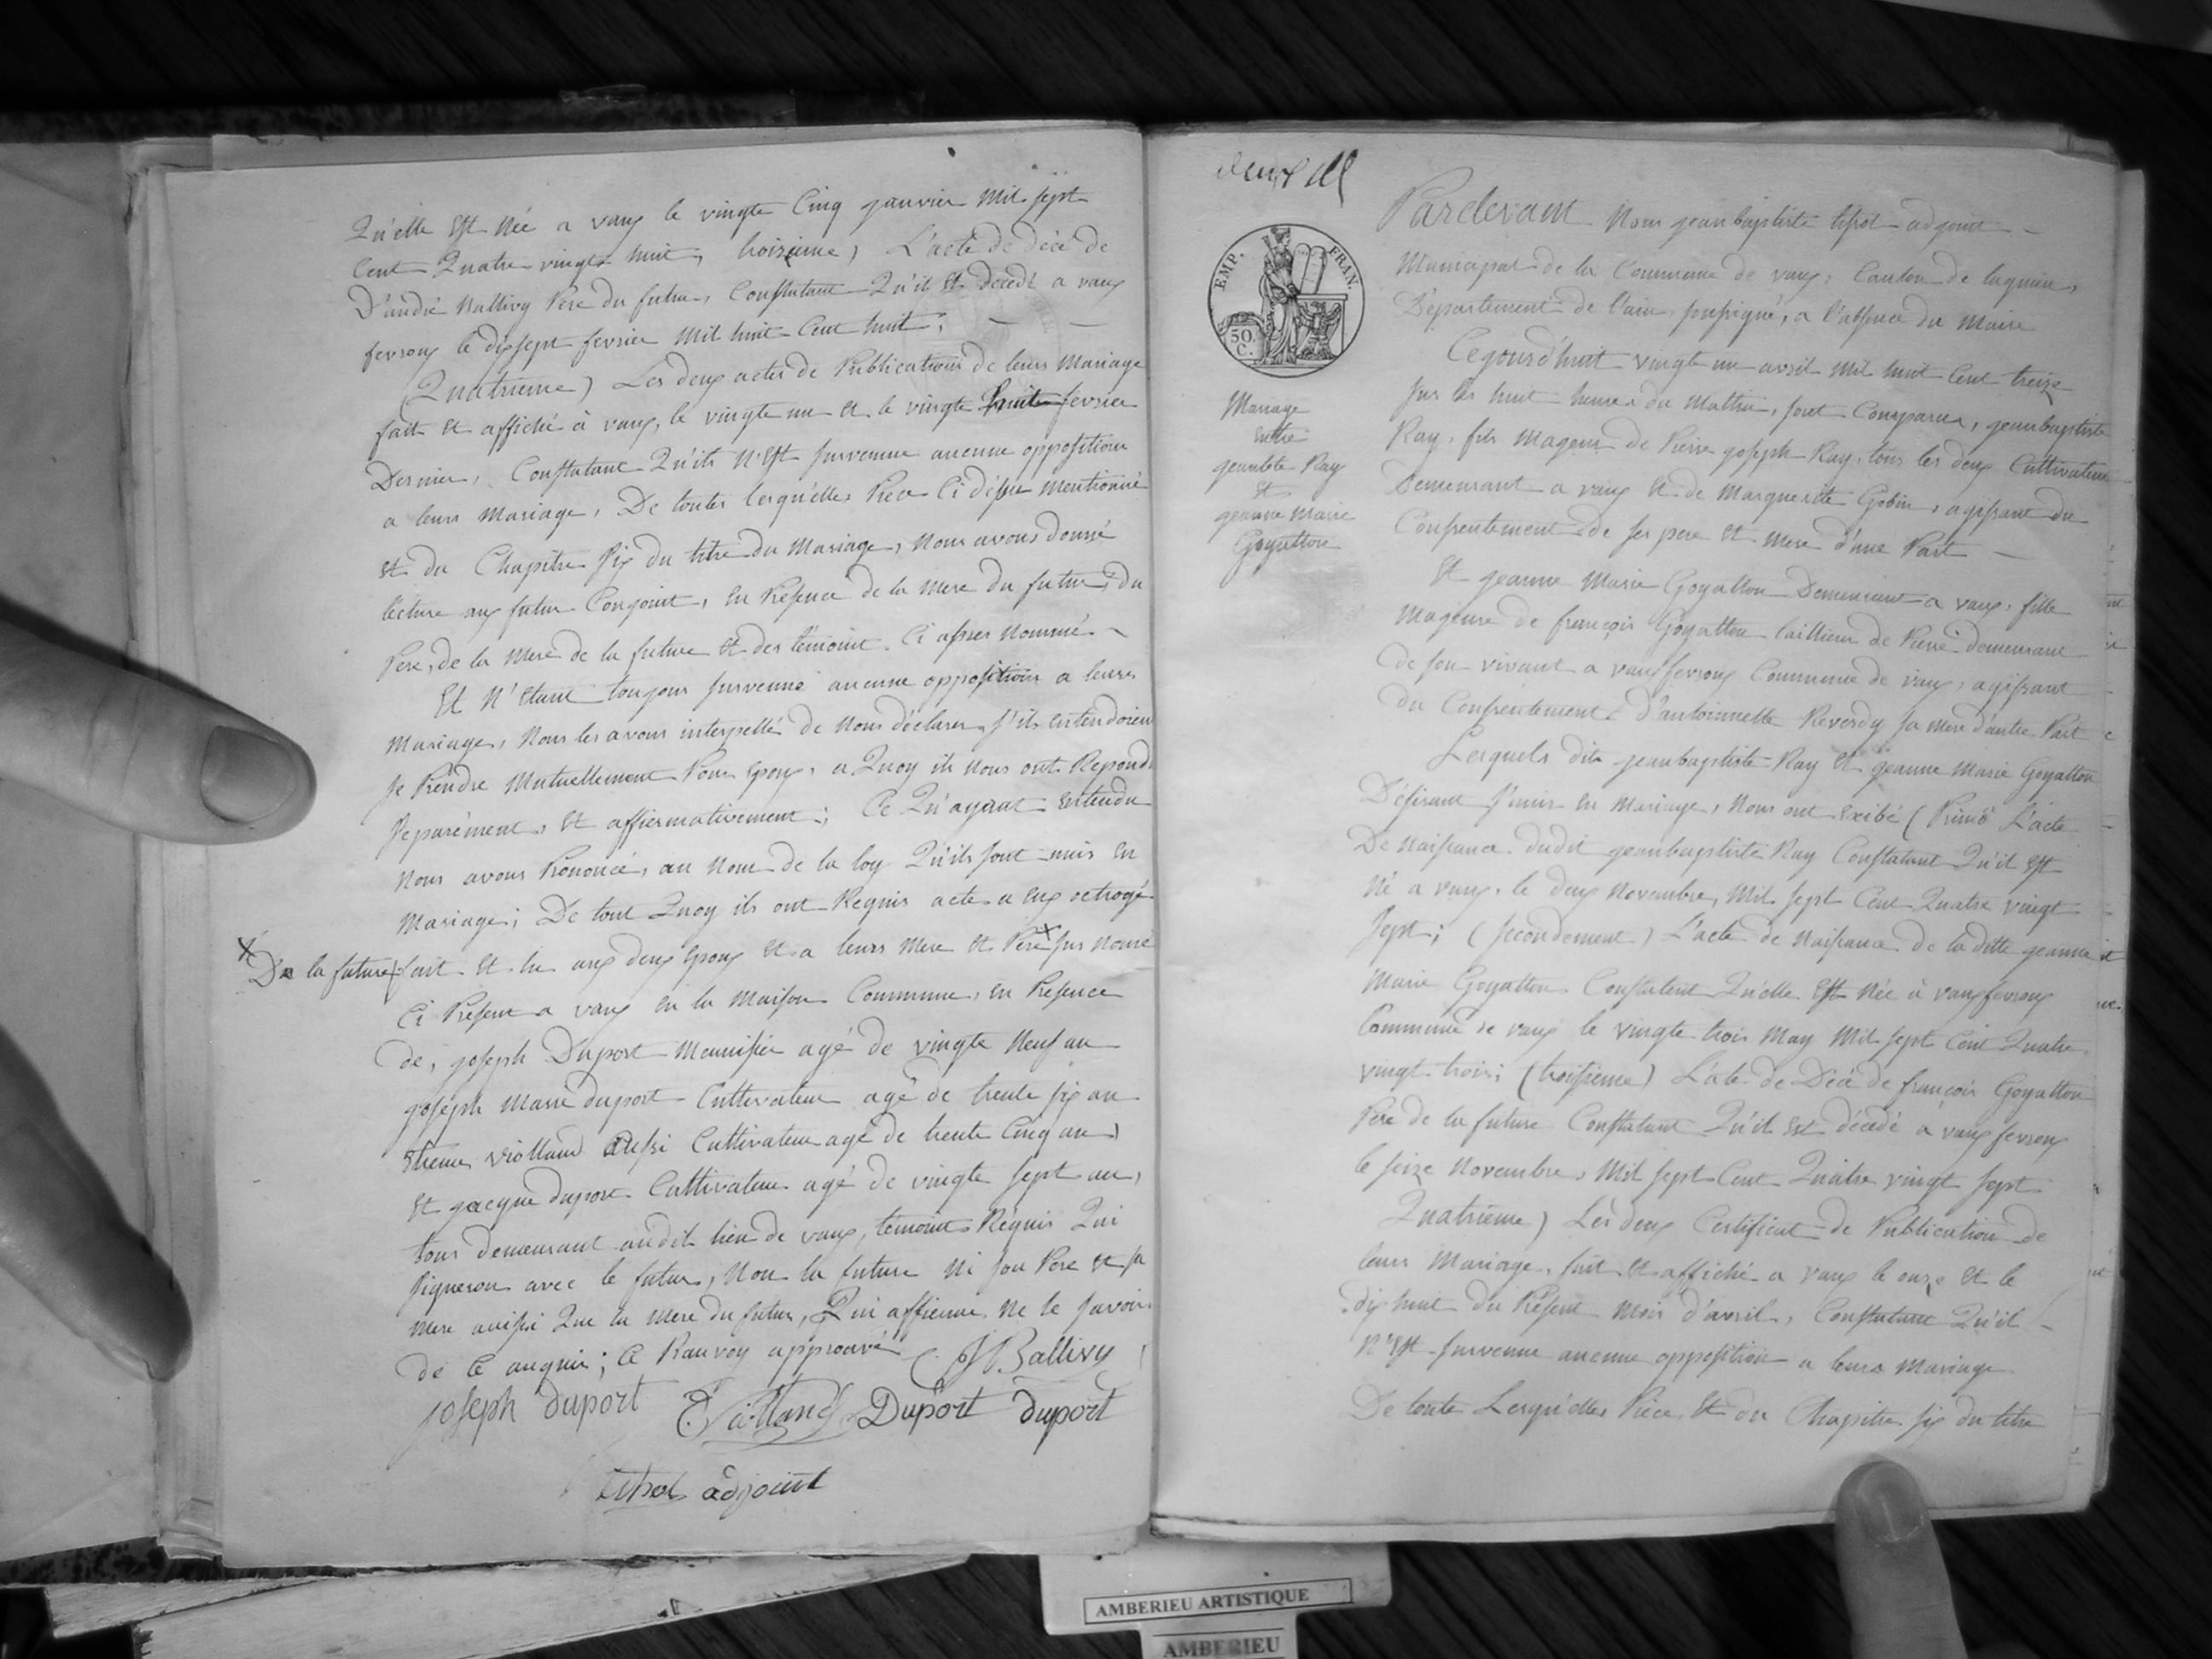 Qu'elle Est Née a vaux le vingte Cinq janvier Mil sept
Cent Quatre vingts huit, troizieme) L'acte de décé de
D'andré Ballivy Pere du futur, Constatant Qu'il Et décédé a vaux
fevroux le dixsept fevrier Mil huit Cent huit;
(Quatrieme) Les deux actes de Publications de leurs Mariage
fait Et affiché à vaux, le vingte un Et le vingte huite fevrier
Dernier, Constatant Qu'ils N'Est survenue aucune opposition
a leurs Mariage, De toutes lesquelles Piece Ci désu mentionné
Et du Chapitre six du titre du Mariage, Nous avons donné
lecture aux futur Conjoint, En Présence de la Mere du futur, du
Pere, de la Mere de la future Et des témoint Ci apres Nommé
Et N'Etant toujour survenue aucune opposition a leurs
Mariage, Nous les avons interpellé de Nous déclarer s'ils Entendoient
se Prendre Mutuellement Pour Epoux, a Quoy ils Nous ont Repondu
séparément, Et affiermativement; Ce Qu'ayant Entendu
Nous avons Prononcé, au Nom de la loy Qu'ils sont unis En
Mariage; De tout Quoy ils ont Requis acte a Eux octroyé
X De la future fait Et lu aux deux Epoux Et a leurs Mere Et Pere X sus Nomé
Ci Présent a vaux En la Maison Commune, En Présence
de, joseph Duport Menuisier agé de vingte Neuf an
joseph Marie duport Cultivateur agé de trente six an
Etienne Violland Aussi Cultivateur agé de trente Cinq ans
Et jacque duport Cultivateur agé de vingte sept an,
tous demeurant audit lieu de vaux, témoint Réquis Qui
signeron avec le futur, Non la future Ni son Pere Et sa
mere aussi Que la mere du futur, Qui affierme Ne le savoir
de Ce anquis; Ce Ranvoy approuvé JB Ballivy
joseph duport E Violland Duport duport
tihol adjoint
deux
EMP. FRAN.
50 C.
Mariage
Entre
jeanbte Ray
Et
jeanne Marie
Goyatton
Pardevant Nous jeanbaptiste tihol adjoint
Municipal de la Commune de vaux, Canton de lagnieu,
Département de l'ain, soussigné, a l'absence du Maire
Cejourd'huit vingte un avril Mil huit Cent treize
sur les huit heures du Mattin, sont Comparus, jeanbaptiste
Ray, fils Mageur de Pierre joseph Ray, tous les deux Cultivateur
Demeurant a vaux Et de Marguerite Gobin, agissant du
Consentement de ses pere Et Mere d'une Part
Et jeanne Marie Goyatton Demeurant a vaux, fille
Mageure de françois Goyatton taillieur de Pierre demeurant
de son vivant a vauxfevroux Commune de vaux, agissant
du Consentement d'antoinnette Reverdy sa mere d'autre Part
Lesquels dits jeanbaptiste Ray Et jeanne Marie Goyatton
Désirant s'unir En Mariage, Nous ont Exibé (Primo L'acte
De Naissance dudit jeanbaptiste Ray Constatant Qu'il Est
Né a vaux, le deux Novembre, Mil sept Cent Quatre vingt
sept; (secondement) L'acte de Naissance de la ditte jeanne
Marie Goyatton Constatent Qu'elle Est Née à vauxfevroux
Commune de vaux le vingte trois May Mil sept Cent Quatre
vingt trois; (troisieme) L'acte de Décé de françois Goyatton
Pere de la future Constatant Qu'il Est décédé a vaux fevroux
le seize Novembre, Mil sept Cent Quatre vingt sept
Quatrieme) Les deux Certificat de Publication de
leurs Mariage, fait Et affiché a vaux le onze Et le
dix huit du Présent Mois d'avril, Constatant Qu'il
N'Est survenue aucune opposition a leurs Mariage
De toute Lesquelles Piece Et du Chapitre six du titre
AMBERIEU ARTISTIQUE
AMBERIEU